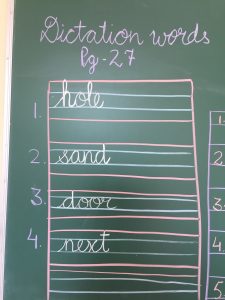 Dictation words
Pg-27
1. hole
2. sand
3. door
4. next
1.
2
3.
4
5